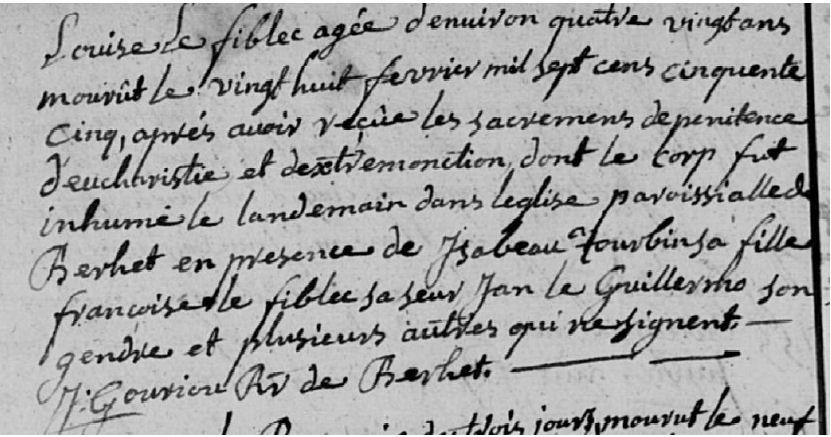 Louise Le fiblec agée d'environ quatre vingt ans
mourût le vingt huit fevrier mil sept cens cinquente
cinq, aprés avoir reçûe les sacremens de penitence
d'eucharistie et dextremonction, dont le corp fut
inhumé le landemain dans leglise paroissialle de
Berhet en presence de Isabeau tourbin sa fille
francoise le fiblec sa seur Jan le Guillermo son
gendre et plusieurs aûtres qui ne signent.
J: Gouriou Rr de Berhet.
trois jours, mourut le neuf